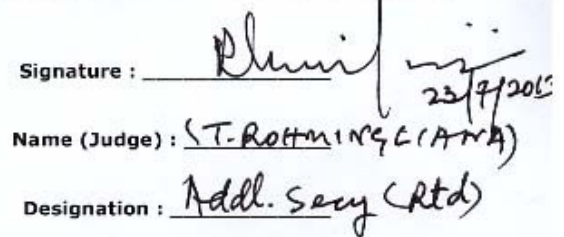 Signature :
23/7/2013
Name (Judge) : (T. ROHMINGLIANA)
Designation : Addl. Secy (Rtd)